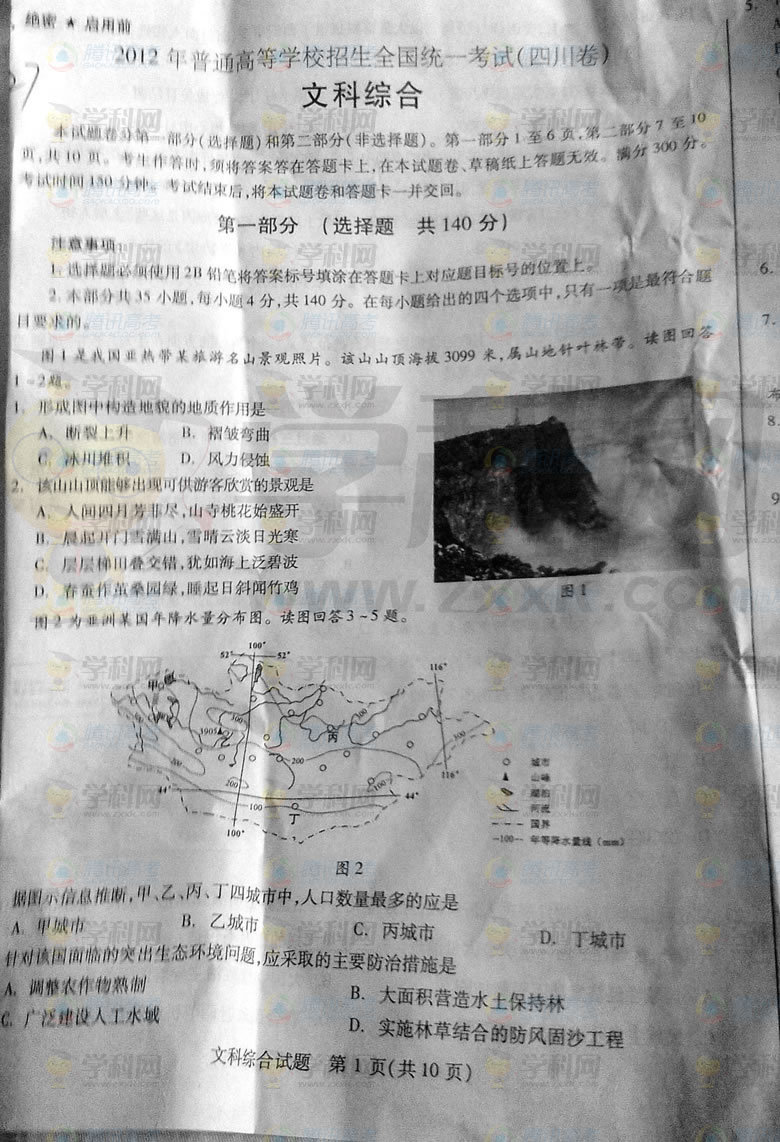 绝密 ★ 启用前
2012年普通高等学校招生全国统一考试(四川卷)
文科综合
本试题卷分第一部分(选择题)和第二部分(非选择题)。第一部分1至6页,第二部分7至10
页,共10页。考生作答时,须将答案答在答题卡上,在本试题卷、草稿纸上答题无效。满分300分。
考试时间150分钟。考试结束后,将本试题卷和答题卡一并交回。
第一部分 (选择题 共140分)
注意事项:
1. 选择题必须使用2B铅笔将答案标号填涂在答题卡上对应题目标号的位置上。
2. 本部分共35小题,每小题4分,共140分。在每小题给出的四个选项中,只有一项是最符合题
目要求的。
图1是我国亚热带某旅游名山景观照片。该山山顶海拔3099米,属山地针叶林带。读图回答
1~2题。
1. 形成图中构造地貌的地质作用是
A. 断裂上升 B. 褶皱弯曲
C. 冰川堆积 D. 风力侵蚀
2. 该山山顶能够出现可供游客欣赏的景观是
A. 人间四月芳菲尽,山寺桃花始盛开
B. 晨起开门雪满山,雪晴云淡日光寒
C. 层层梯田叠交错,犹如海上泛碧波
D. 春蚕作茧桑园绿,睡起日斜闻竹鸡
图1
图2为亚洲某国年降水量分布图。读图回答3~5题。
100°
52° 52°
116°
甲
100
100
100
3905
丙
200
200
200
100
116°
44°
100
44°
丁
100°
城市
山峰
湖泊
河流
国界
—100— 年等降水量线(mm)
图2
据图示信息推断,甲、乙、丙、丁四城市中,人口数量最多的应是
A. 甲城市 B. 乙城市 C. 丙城市 D. 丁城市
针对该国面临的突出生态环境问题,应采取的主要防治措施是
A. 调整农作物熟制 B. 大面积营造水土保持林
C. 广泛建设人工水域 D. 实施林草结合的防风固沙工程
文科综合试题 第1页(共10页)
5.
6.
7.
8.
9
学科网
www.zxxk.com
腾讯高考